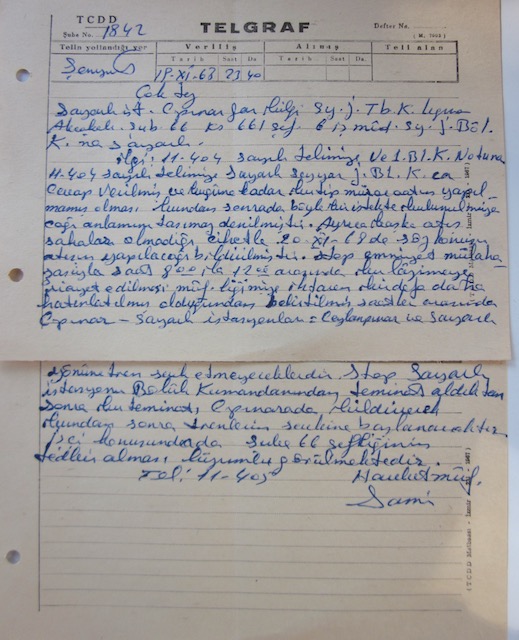 TCDD
Şube No. 1842
TELGRAF
Defter No.
( M. 7002 )
Telin yollandığı yer
Veriliş
Alınış
Teli alan
Tarih Saat Da.
Tarih Saat Da.
Şenyurt
19-XI-68 23 40
Çok iv
Sayarlı ist. C.pınar gar bilgi Sy. j. Tb. K.
Akçakale Şub. 66 ks 661 şef. 6 iş müd. Sy. j. Böl.
K. na Sayarlı.
İlgi: 11-404 sayılı telimize ve 1. Bl. K. Notuna
11-404 sayılı telimize Sayarlı seyyar j. Bl. K. ca
Cevap verilmiş ve bugüne kadar bu tip müracaatın yapıl
mamış olması bundan sonrada böyle bir istekte bulunulmıya
cağı anlamını taşımaz denilmiştir. Ayrıca başka atış
sahaları olmadığı cihetle 20-XI-68 de söz konusu
atışın yapılacağı bildirilmiştir. Stop emniyet mülaha
zasıyla saat 8 00 ila 12 00 arasında
riayet edilmesi müf. liğimize daha
hatırlatılmış olduğundan belirtilmiş saatler arasında
C.pınar - Sayarlı istasyonları = Ceylanpınar ve Sayarlı
yönüne tren sevk etmeyeceklerdir. Stop Sayarlı
istasyonu Bölük Kumandanından teminat aldıktan
sonra bu teminatı C.pınarada bildirecek
bundan sonra trenlerin sevkine başlanacaktır
işçi konusundada şube 66 şefliğinin
tedbir alması lüzumlu görülmektedir.
Tel: 11-405
Hareket müf.
Sami
(TCDD Matbaası - İzmir 1967)